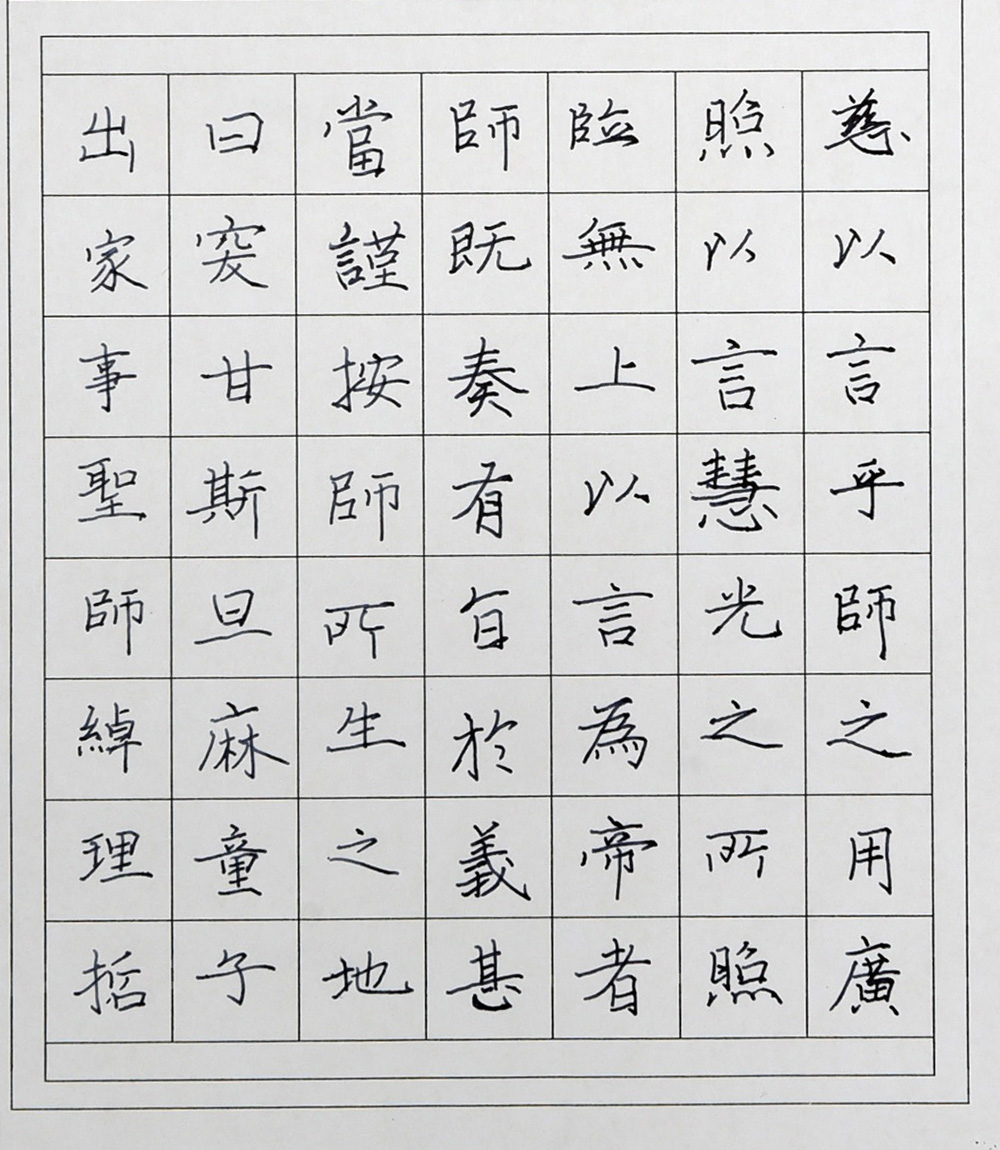 慈以言乎師之用廣
照以言慧光之所照
臨無上以言為帝者
師既奏有旨於義甚
當謹按師所生之地
曰突甘斯旦麻童子
出家事聖師綽理哲